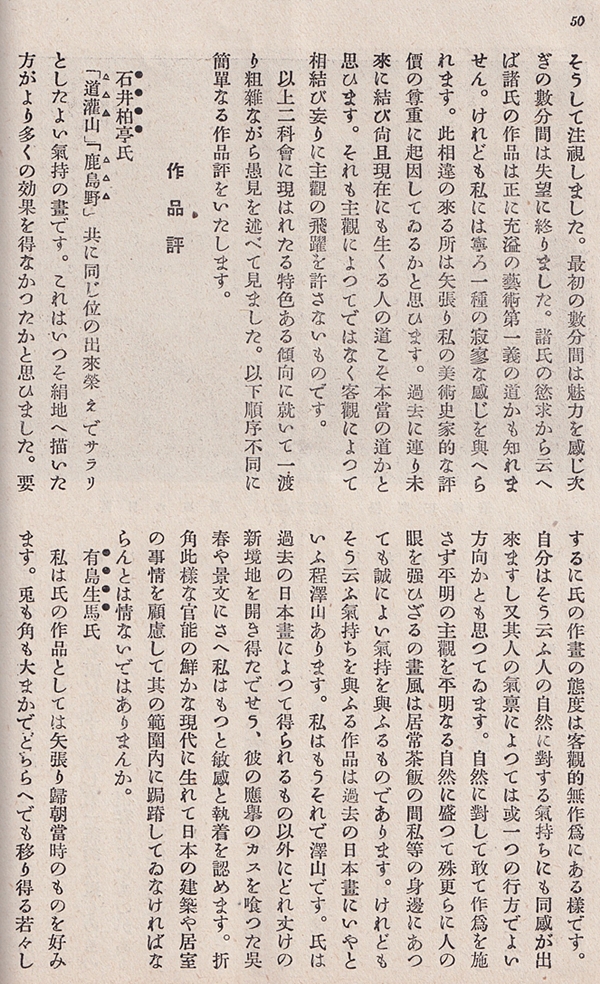 50
そうして注視しました。最初の數分間は魅力を感じ次
ぎの數分間は失望に終りました。諸氏の慾求から云へ
ば諸氏の作品は正に充溢の藝術第一義の道かも知れま
せん。けれども私には寧ろ一種の寂寥な感じを與へら
れます。此相違の來る所は矢張り私の美術史家的な評
價の尊重に起因してゐるかと思ひます。過去に連り未
來に結び尙且現在にも生くる人の道こそ本當の道かと
思ひます。それも主觀によつてではなく客觀によつて
相結び妄りに主觀の飛躍を許さないものです。
以上二科會に現はれたる特色ある傾向に就いて一渡
り粗雜ながら愚見を述べて見ました。以下順序不同に
簡單なる作品評をいたします。
作品評
石井柏亭氏
「道灌山」「鹿島野」共に同じ位の出來榮えでサラリ
としたよい氣持の畫です。これはいつそ絹地へ描いた
方がより多くの効果を得なかつたかと思ひました。要
するに氏の作畫の態度は客觀的無作爲にある樣です。
自分はそう云ふ人の自然に對する氣持ちにも同感が出
來ますし又其人の氣禀によつては或一つの行方でよい
方向かとも思つてゐます。自然に對して敢て作爲を施
さず平明の主觀を平明なる自然に盛つて殊更らに人の
眼を强ひざるの畫風は居常茶飯の間私等の身邊にあつ
ても誠によい氣持を與ふるものであります。けれども
そう云ふ氣持ちを與ふる作品は過去の日本畫にいやと
いふ程澤山あります。私はもうそれで澤山です。氏は
過去の日本畫によつて得られるもの以外にどれ丈けの
新境地を開き得たでせう、彼の應擧のカスを喰つた吳
春や景文にさへ私はもつと敏感と執着を認めます。折
角此樣な官能の鮮かな現代に生れて日本の建築や居室
の事情を顧慮して其の範圍內に跼蹐してゐなければな
らんとは情ないではありまんか。
有島生馬氏
私は氏の作品としては矢張り歸朝當時のものを好み
ます。兎も角も大まかでどちらへでも移り得る若々し